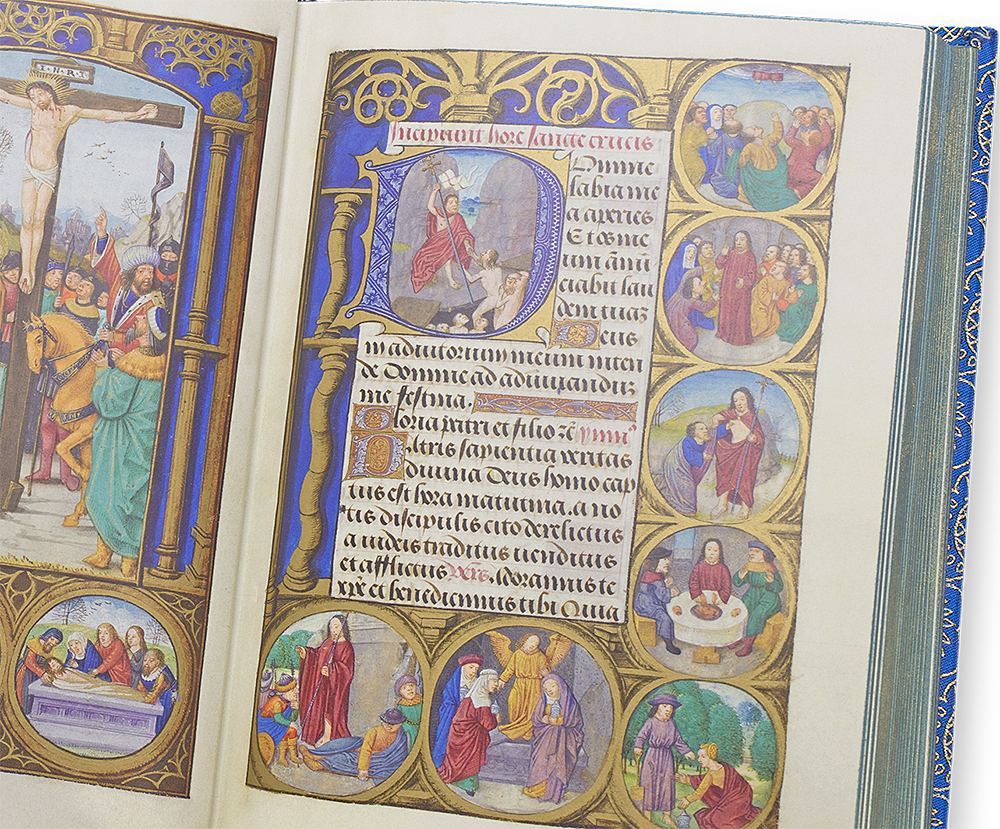 I·N·R·I
Incipiunt hore sancte crucis
Domine
labia me
a aperies
Et os me
umānū
ciabit lau
dem tuaʒ
Deus
in adiutorium meum inten
de Domine ad adiuuanduʒ
me festina.
Gloria patri et filio ꝛc̄ ymnꝰ
Patris sapientia veritas
diuina Deus homo cap
tus est hora matutina. a no
tis discipulis cito derelictus
a iudeis traditus venditus
et afflictus Vers. Adoramus te
xp̄e et benedicimus tibi Quia